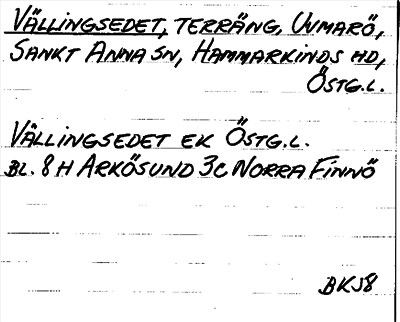 VÄLLINGSEDET, TERRÄNG, UVMARÖ,
SANKT ANNA SN, HAMMARKINDS HD,
ÖSTG.L.
VÄLLINGSEDET EK ÖSTG.L.
BL. 8 H ARKÖSUND 3C NORRA FINNÖ
BKJ8